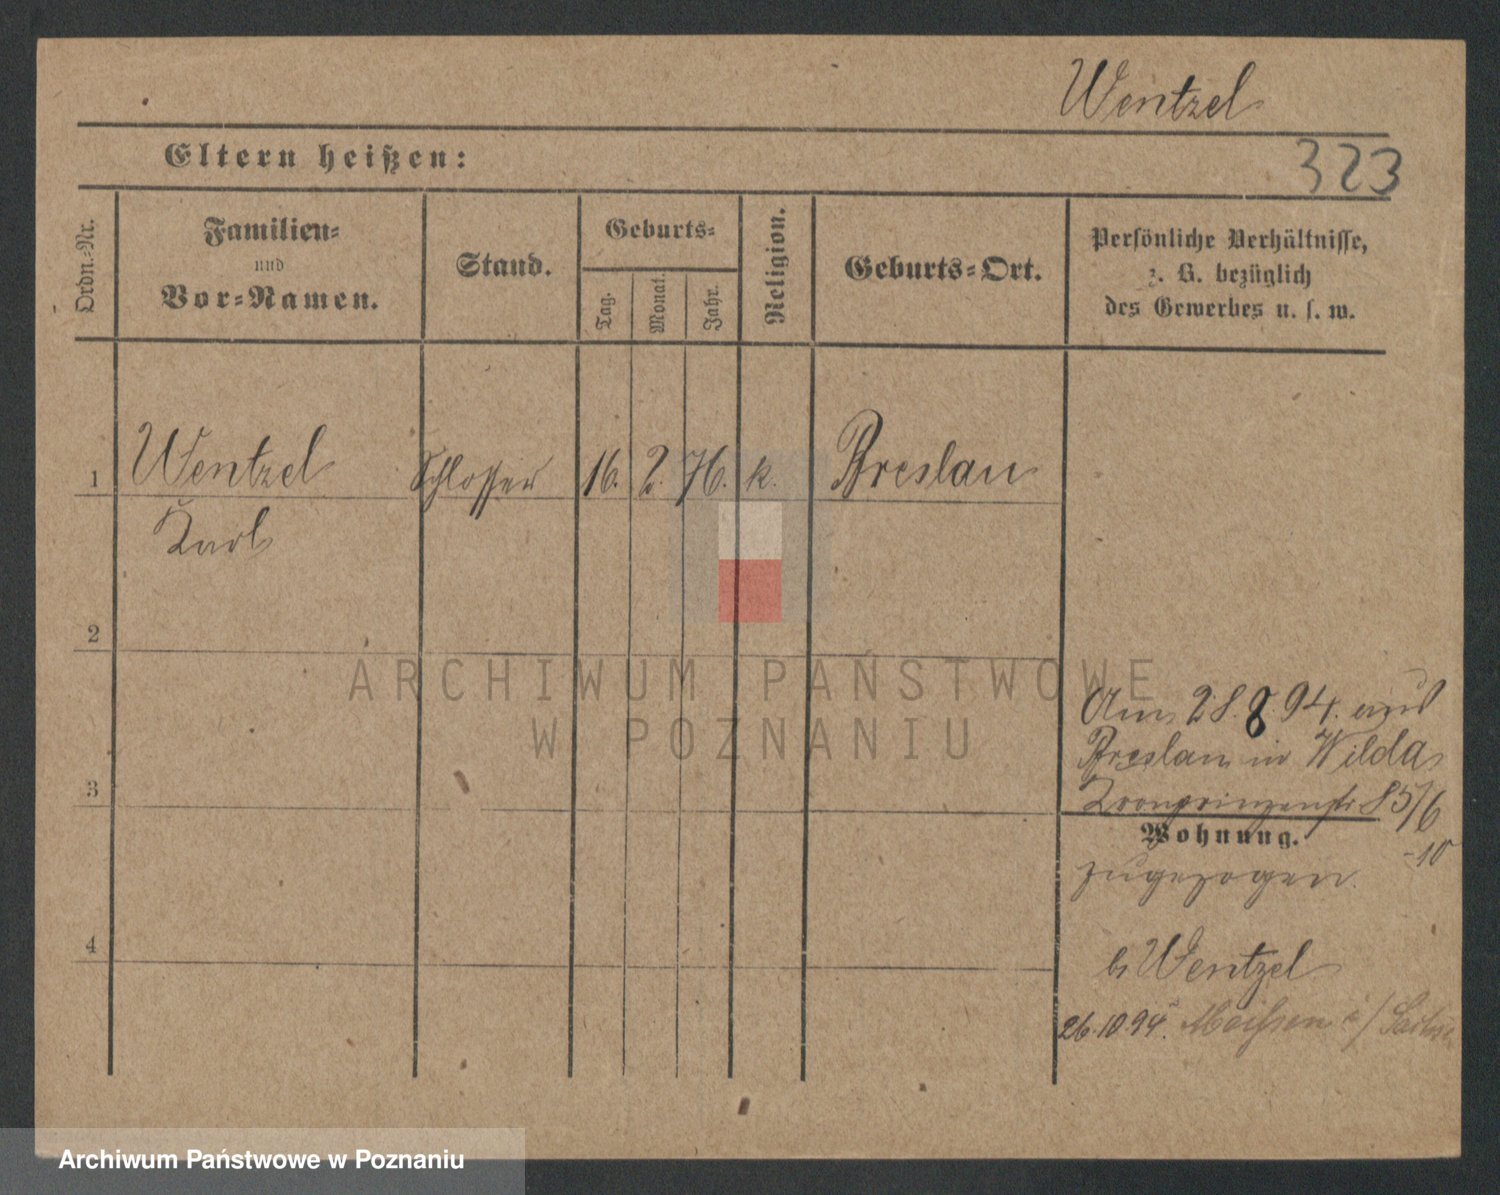 Wentzel
323
Eltern heißen:
Ordn.-Nr.
Familien-
und
Vor-Namen.
Stand.
Geburts-
Tag.
Monat.
Jahr.
Religion.
Geburts-Ort.
Persönliche Verhältnisse,
z. B. bezüglich
des Gewerbes u. s. w.
1 Wentzel Schlosser 16. 2. 76. k. Breslau
Karl
2
3
4
Am 28.8.94. aus
Breslau in Wilda
Kronprinzenstr 85/6
-10
Wohnung.
zugezogen.
b. Wentzel
26.10.94. Meißen i/Sachsen
ARCHIWUM PAŃSTWOWE
W POZNANIU
Archiwum Państwowe w Poznaniu